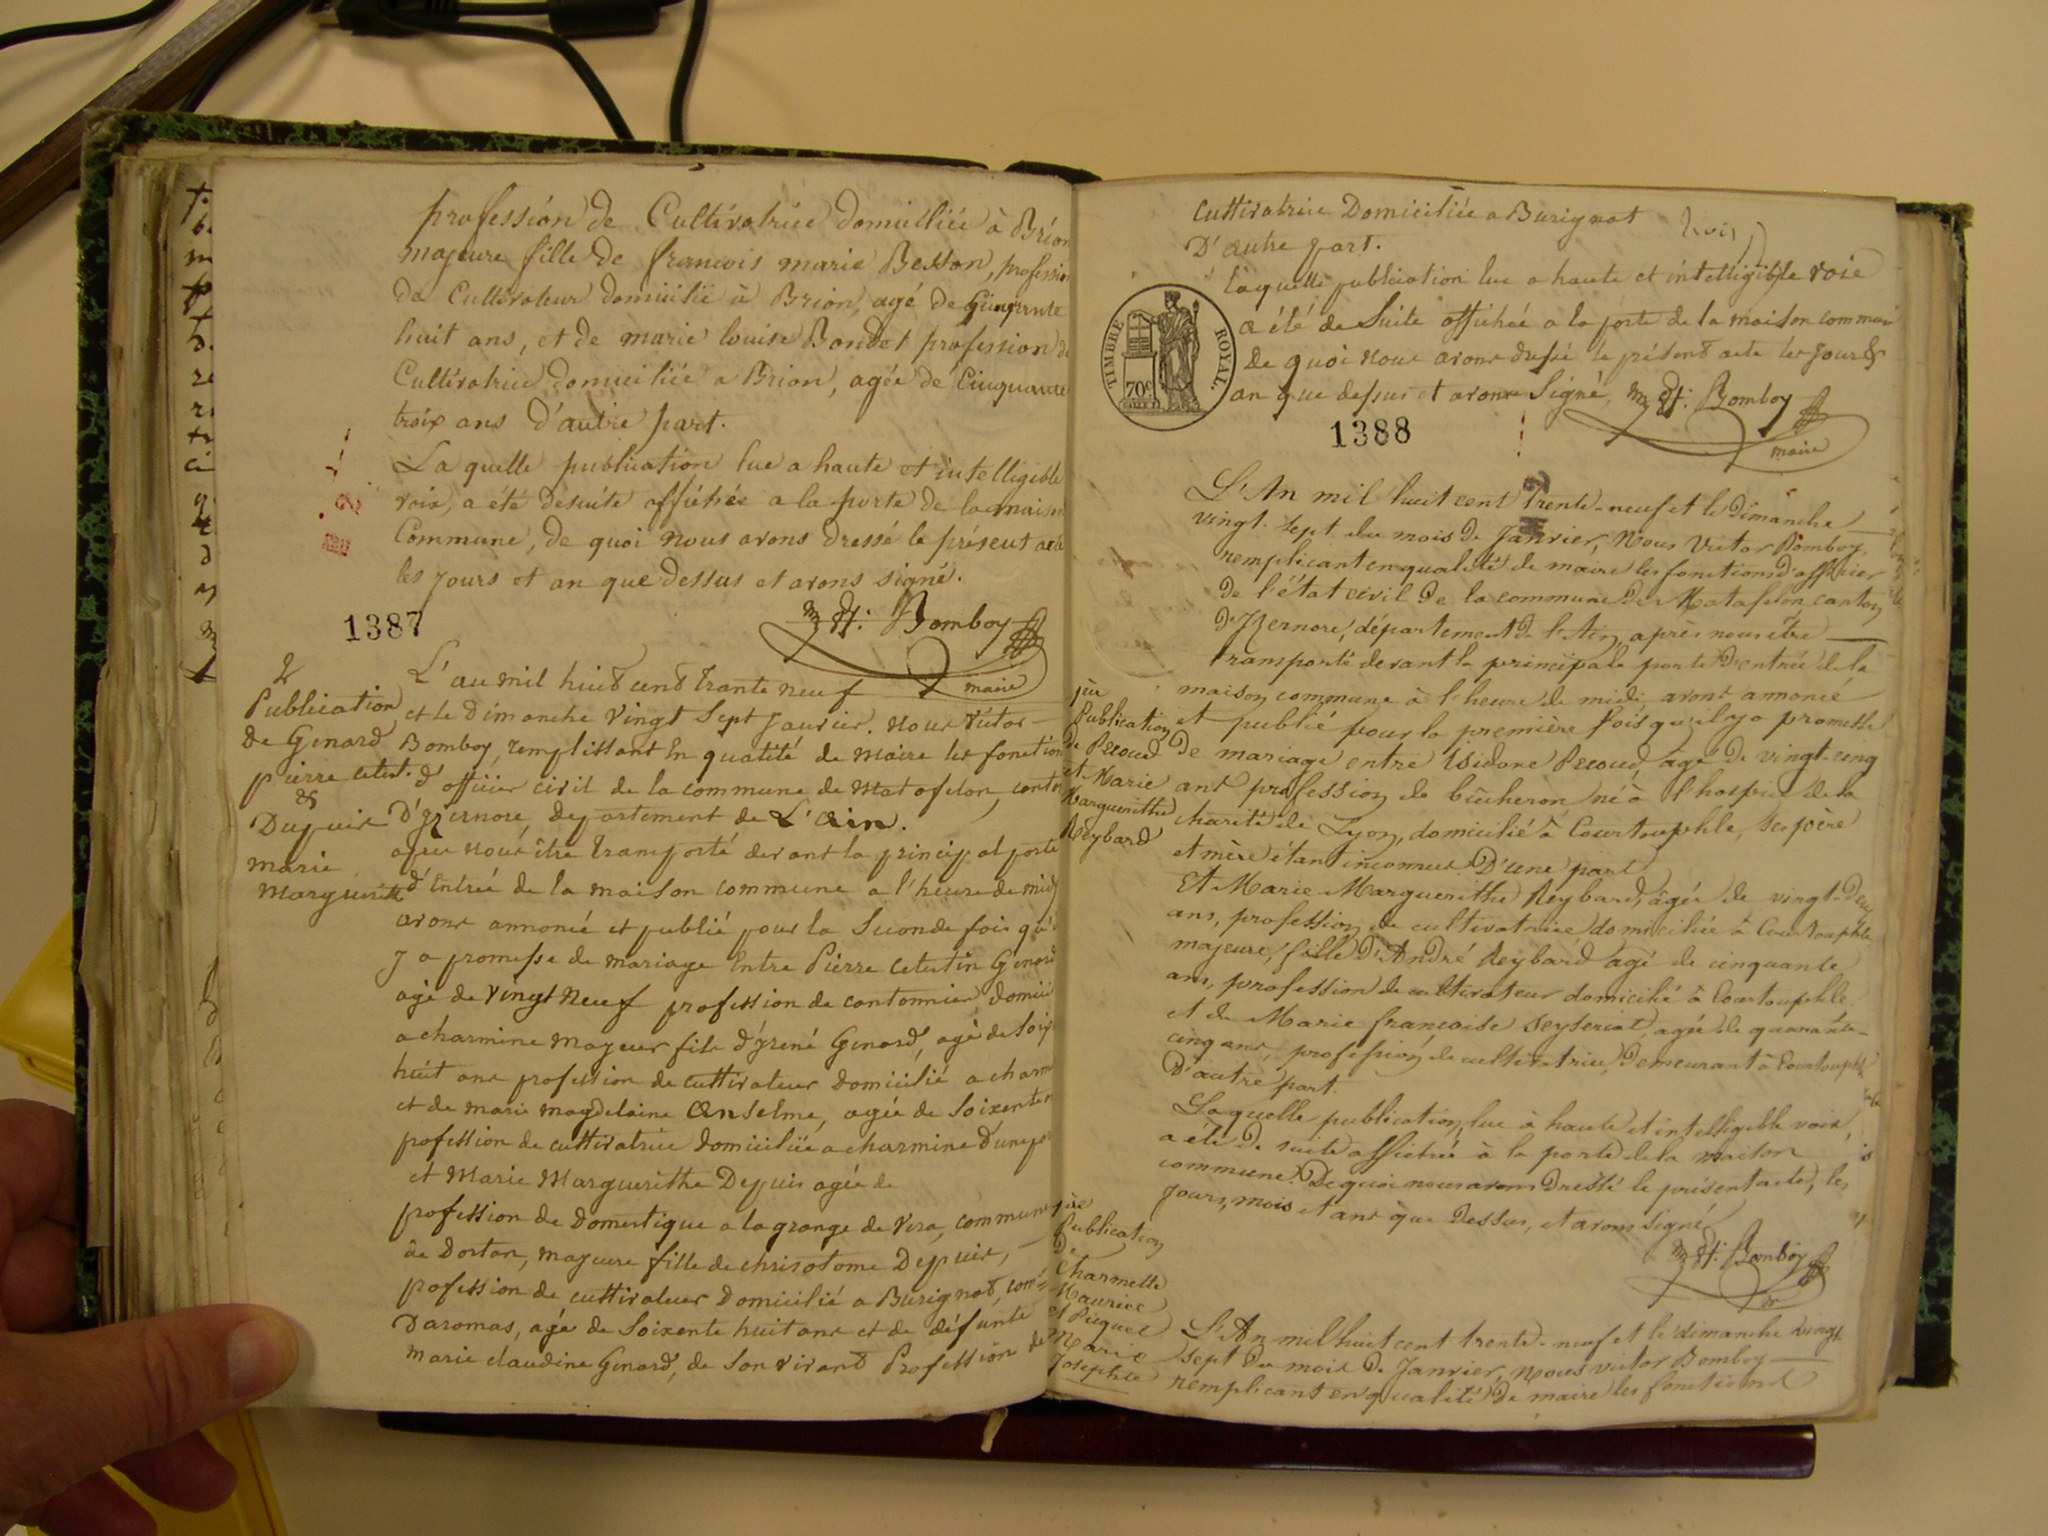 profession de Cultivatrice domiciliée à Brion
majeure fille de francois marie Besson, profession
de Cultivateur domicilié à Brion, agé de Cinquante
huit ans, et de marie louise Bondet profession de
Cultivatrice domiciliée a Brion, agée de Cinquante
troix ans d'autre part.
La quelle publication lue a haute et intelligible
voix, a été desuite affichée a la porte de la maison
Commune, de quoi nous avons dressé le présent acte
les jours et an que dessus et avons signé.
Bomboy
maire
1387
2
Publication
de Genard
pierre celest.
&
Dupuis
marie
Marguerithe
L'an mil huit cent trante neuf
et le Dimanche vingt Sept Janvier. nous victor
Bomboy, remplissant En qualité de Maire les fonction
d'officier civil de la commune de Matafelon, canton
D'izernore, departement de L'ain.
apres nous être tramporté devant la principal porte
d'Entrée de la maison commune a l'heure de midy
avons annoncé et publié pour la Seconde fois qu'i
y a promesse de mariage Entre Pierre Celestin Genard
agé de vingt Neuf profession de cantonnier domici
a charmine majeur fils d'yrené Genard, agé de Soix
huit ans profession de cultivateur domicilié a charm
et de marie magdelaine Anselme, agée de Soixenter
profession de cultivatrice domiciliée a charmine d'une par
et Marie Marguerithe Depuis agée de
profession de domestique a la grange de Vera, commune
de Dortan, majeure fille de chrisotome Depuis,
profession de cultivateur domicilié a Burignat, com
Daromas, agé de Soixente huit ans et de défunte
marie claudine Genard, de Son vivant Profession de
Cultivatrice Domiciliée a Burignat
D'autre part.
laquelle publication lue a haute et intelligible voie
a été de Suite affichée a la porte de la maison commun
de quoi nous avons dressé le présent acte les jours &
an que dessus et avons Signé, Bomboy
maire
TIMBRE ROYAL.
70c
1388
L'An mil huit cent trente-neuf et le Dimanche
vingt-sept du mois de Janvier, Nous Victor Bomboy,
remplicant en qualité de maire les fonctions d'officier
de l'état civil de la commune de Matafelon, canton
d'Izernore, département de l'Ain, après nous être
transporté devant la principale porte d'entrée de la
maison commune à l'heure de midi avons annoncé
et publié pour la première fois qu'il y a promesse
de mariage entre Isidore Pecoud, agé de vingt-cinq
ans profession de bûcheron né à l'hospice de la
charité de Lyon, domicilié à Courtouphle, ses père
et mère étan inconnus. D'une part
Et Marie-Marguerithe Reybard, âgée de vingt-deux
ans, profession de cultivatrice domiciliée à Courtouphle
majeure, fille D'André Reybard agé de cinquante
ans, profession de cultivateur domicilié à Courtouphle
et de Marie françoise Seyseriat, agée de quarante-
cinq ans, profession de cultivatrice, Demeurant à Courtouphle
D'autre part.
Laquelle publication, lue à haute et intelligible voix,
a été de suite affichée à la porte de la maison
commune. De quoi nous avons dressé le présent acte, les
jours, mois et ans que Dessus, et avons signé
Bomboy
1ère
Publication
de Pecoud
et Marie
Marguerithe
Reybard
1ère
Publication
De
Charmette
Maurice
et Picquet
Marie
Josephte
L'An mil huit cent trente-neuf et le dimanche vingt
sept du mois de Janvier, Nous victor Bomboy
remplicant en qualité de maire les fonctions